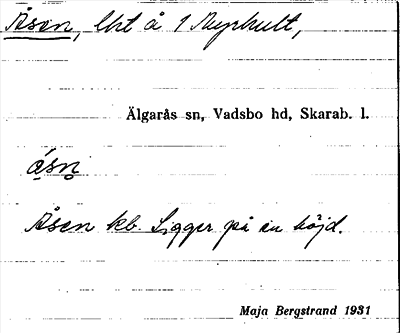 Åsen, lht å 1 Myrhult,
Älgarås sn, Vadsbo hd, Skarab. l.
åsn̥
Åsen kb. Ligger på en höjd.
Maja Bergstrand 1931